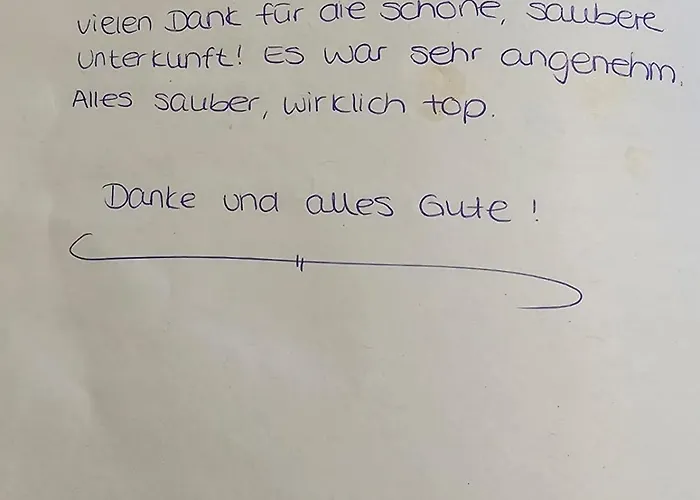 vielen Dank für die schöne, saubere
Unterkunft! Es war sehr angenehm.
Alles sauber, wirklich top.
Danke und alles Gute!